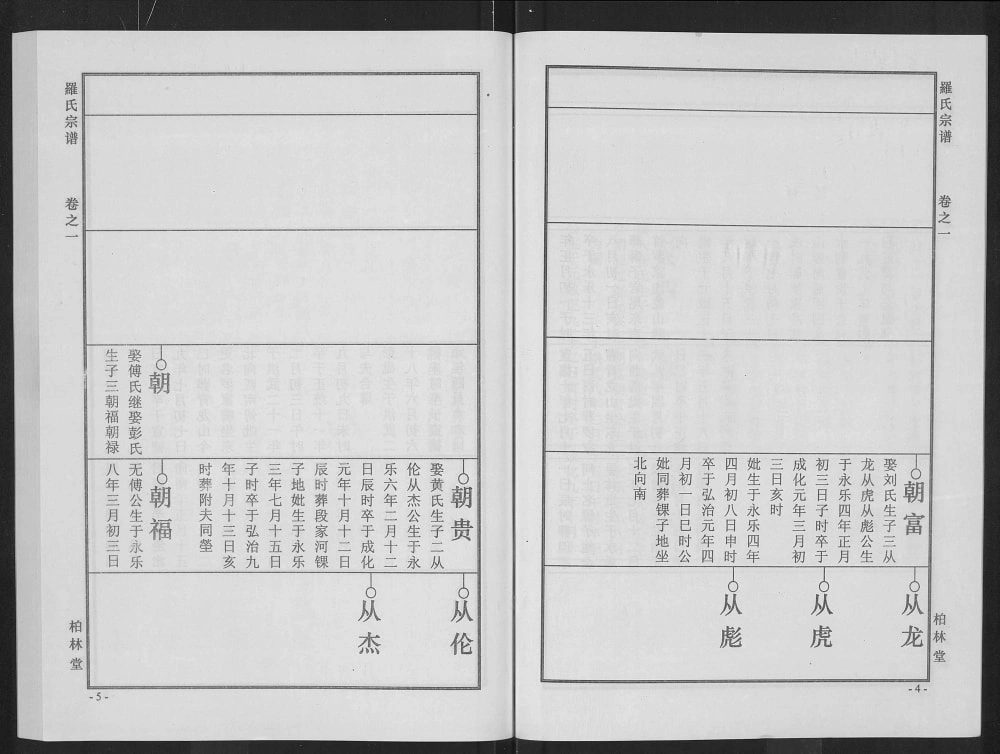 羅氏宗谱
卷之一
柏林堂
-4-
朝富
娶刘氏生子三从
龙从虎从彪公生
于永乐四年正月
初三日子时卒于
成化元年三月初
三日亥时
妣生于永乐四年
四月初八日申时
卒于弘治元年四
月初一日巳时公
妣同葬锞子地坐
北向南
从龙
从虎
从彪
朝贵
娶黄氏生子二从
伦从杰公生于永
乐六年二月十二
日辰时卒于成化
元年十月十二日
辰时葬段家河锞
子地妣生于永乐
三年七月十五日
子时卒于弘治九
年十月十三日亥
时葬附夫同塋
从伦
从杰
朝
娶傅氏继娶彭氏
生子三朝福朝禄
朝福
无傅公生于永乐
八年三月初三日
羅氏宗谱
卷之一
柏林堂
-5-